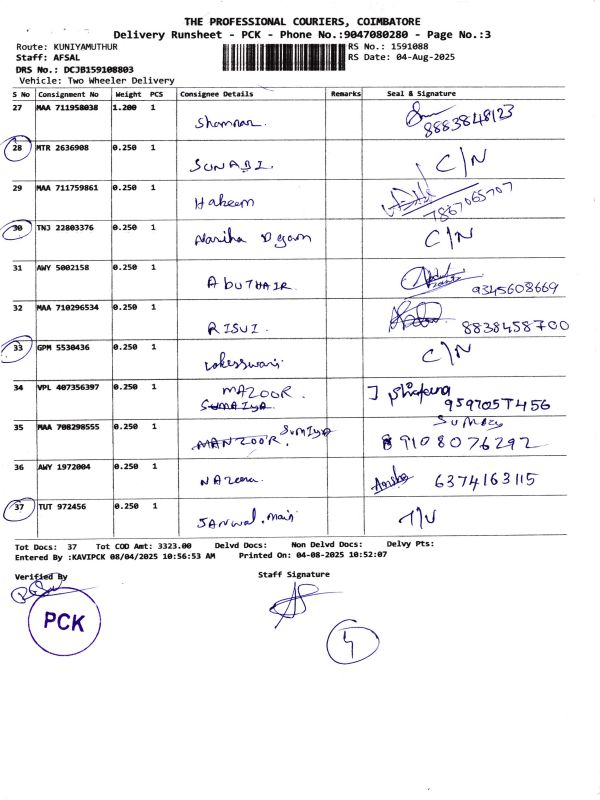 THE PROFESSIONAL COURIERS, COIMBATORE
Delivery Runsheet - PCK - Phone No.:9047080280 - Page No.:3
Route: KUNIYAMUTHUR RS No.: 1591088
Staff: AFSAL RS Date: 04-Aug-2025
DRS No.: DCJB159108803
Vehicle: Two Wheeler Delivery
S No Consignment No Weight PCS Consignee Details Remarks Seal & Signature
27 MAA 711958038 1.200 1 8883848123
28 MTR 2636908 0.250 1 SUNABI. C/N
29 MAA 711759861 0.250 1 Hakeem 7867065707
30 TNJ 22803376 0.250 1 C/N
31 AWY 5002158 0.250 1 ABUTHAIR. 9345608669
32 MAA 710296534 0.250 1 RISVI. 8838458700
33 GPM 5530436 0.250 1 C/N
34 VPL 407356397 0.250 1 MAZOOR.
SUMAIYA
35 MAA 708298555 0.250 1 MANZOOR. SUMIYA 9108076292
36 AWY 1972004 0.250 1 NAZeema. 6374163115
37 TUT 972456 0.250 1
Tot Docs: 37 Tot COD Amt: 3323.00 Delvd Docs: Non Delvd Docs: Delvy Pts:
Entered By :KAVIPCK 08/04/2025 10:56:53 AM Printed On: 04-08-2025 10:52:07
Verified By Staff Signature
PCK